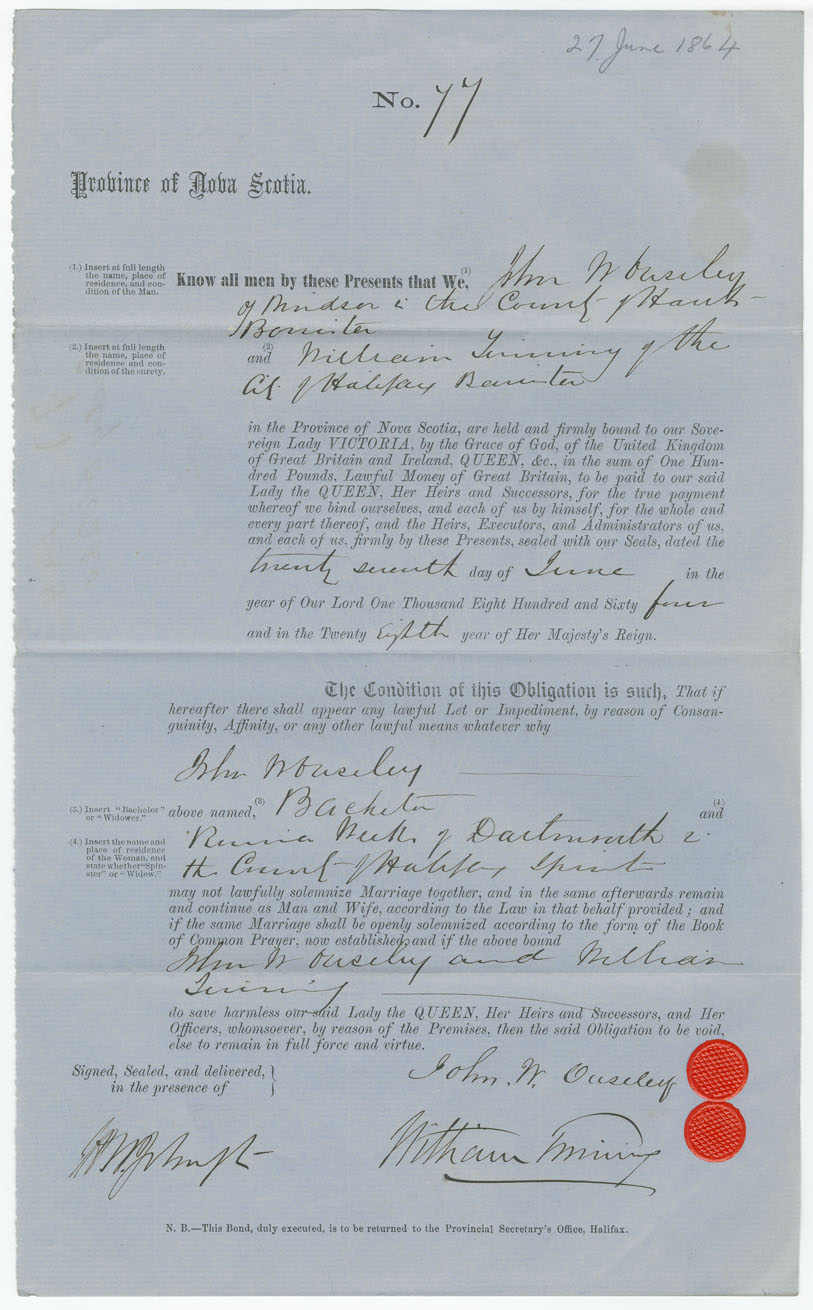 27. June 1864
No. 77
Province of Nova Scotia.
(1.) Insert at full length
the name, place of
residence, and con-
dition of the Man.
Know all men by these Presents that We, (1) John W Ouseley
of Windsor in the County of Hants
Barrister
(2.) Insert at full length
the name, place of
residence and con-
dition of the surety.
(2)
and William Twining of the
City of Halifax Barrister
in the Province of Nova Scotia, are held and firmly bound to our Sove-
reign Lady VICTORIA, by the Grace of God, of the United Kingdom
of Great Britain and Ireland, QUEEN, &c., in the sum of One Hun-
dred Pounds, Lawful Money of Great Britain, to be paid to our said
Lady the QUEEN, Her Heirs and Successors, for the true payment
whereof we bind ourselves, and each of us by himself, for the whole and
every part thereof, and the Heirs, Executors, and Administrators of us,
and each of us, firmly by these Presents, sealed with our Seals, dated the
twenty seventh day of June in the
year of Our Lord One Thousand Eight Hundred and Sixty four
and in the Twenty Eighth year of Her Majesty's Reign.
The Condition of this Obligation is such, That if
hereafter there shall appear any lawful Let or Impediment, by reason of Consan-
guinity, Affinity, or any other lawful means whatever why
John W Ouseley
(3.) Insert "Bachelor"
or "Widower."
above named, (3) Bachelor (4) and
(4.) Insert the name and
place of residence
of the Woman, and
state whether "Spin-
ster" or "Widow."
Weeks of Dartmouth in
the County of Halifax Spinster
may not lawfully solemnize Marriage together, and in the same afterwards remain
and continue as Man and Wife, according to the Law in that behalf provided; and
if the same Marriage shall be openly solemnized according to the form of the Book
of Common Prayer, now established, and if the above bound
John W Ouseley and William
Twining
do save harmless our said Lady the QUEEN, Her Heirs and Successors, and Her
Officers, whomsoever, by reason of the Premises, then the said Obligation to be void,
else to remain in full force and virtue.
Signed, Sealed, and delivered,
in the presence of
John. W. Ouseley
William Twining
N. B.—This Bond, duly executed, is to be returned to the Provincial Secretary's Office, Halifax.